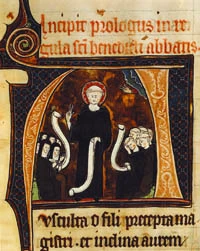 Incipit prologus in re
gula sc̄i benedicti abbatis.
Ausculta o fili precepta ma
gistri · et inclina aurem